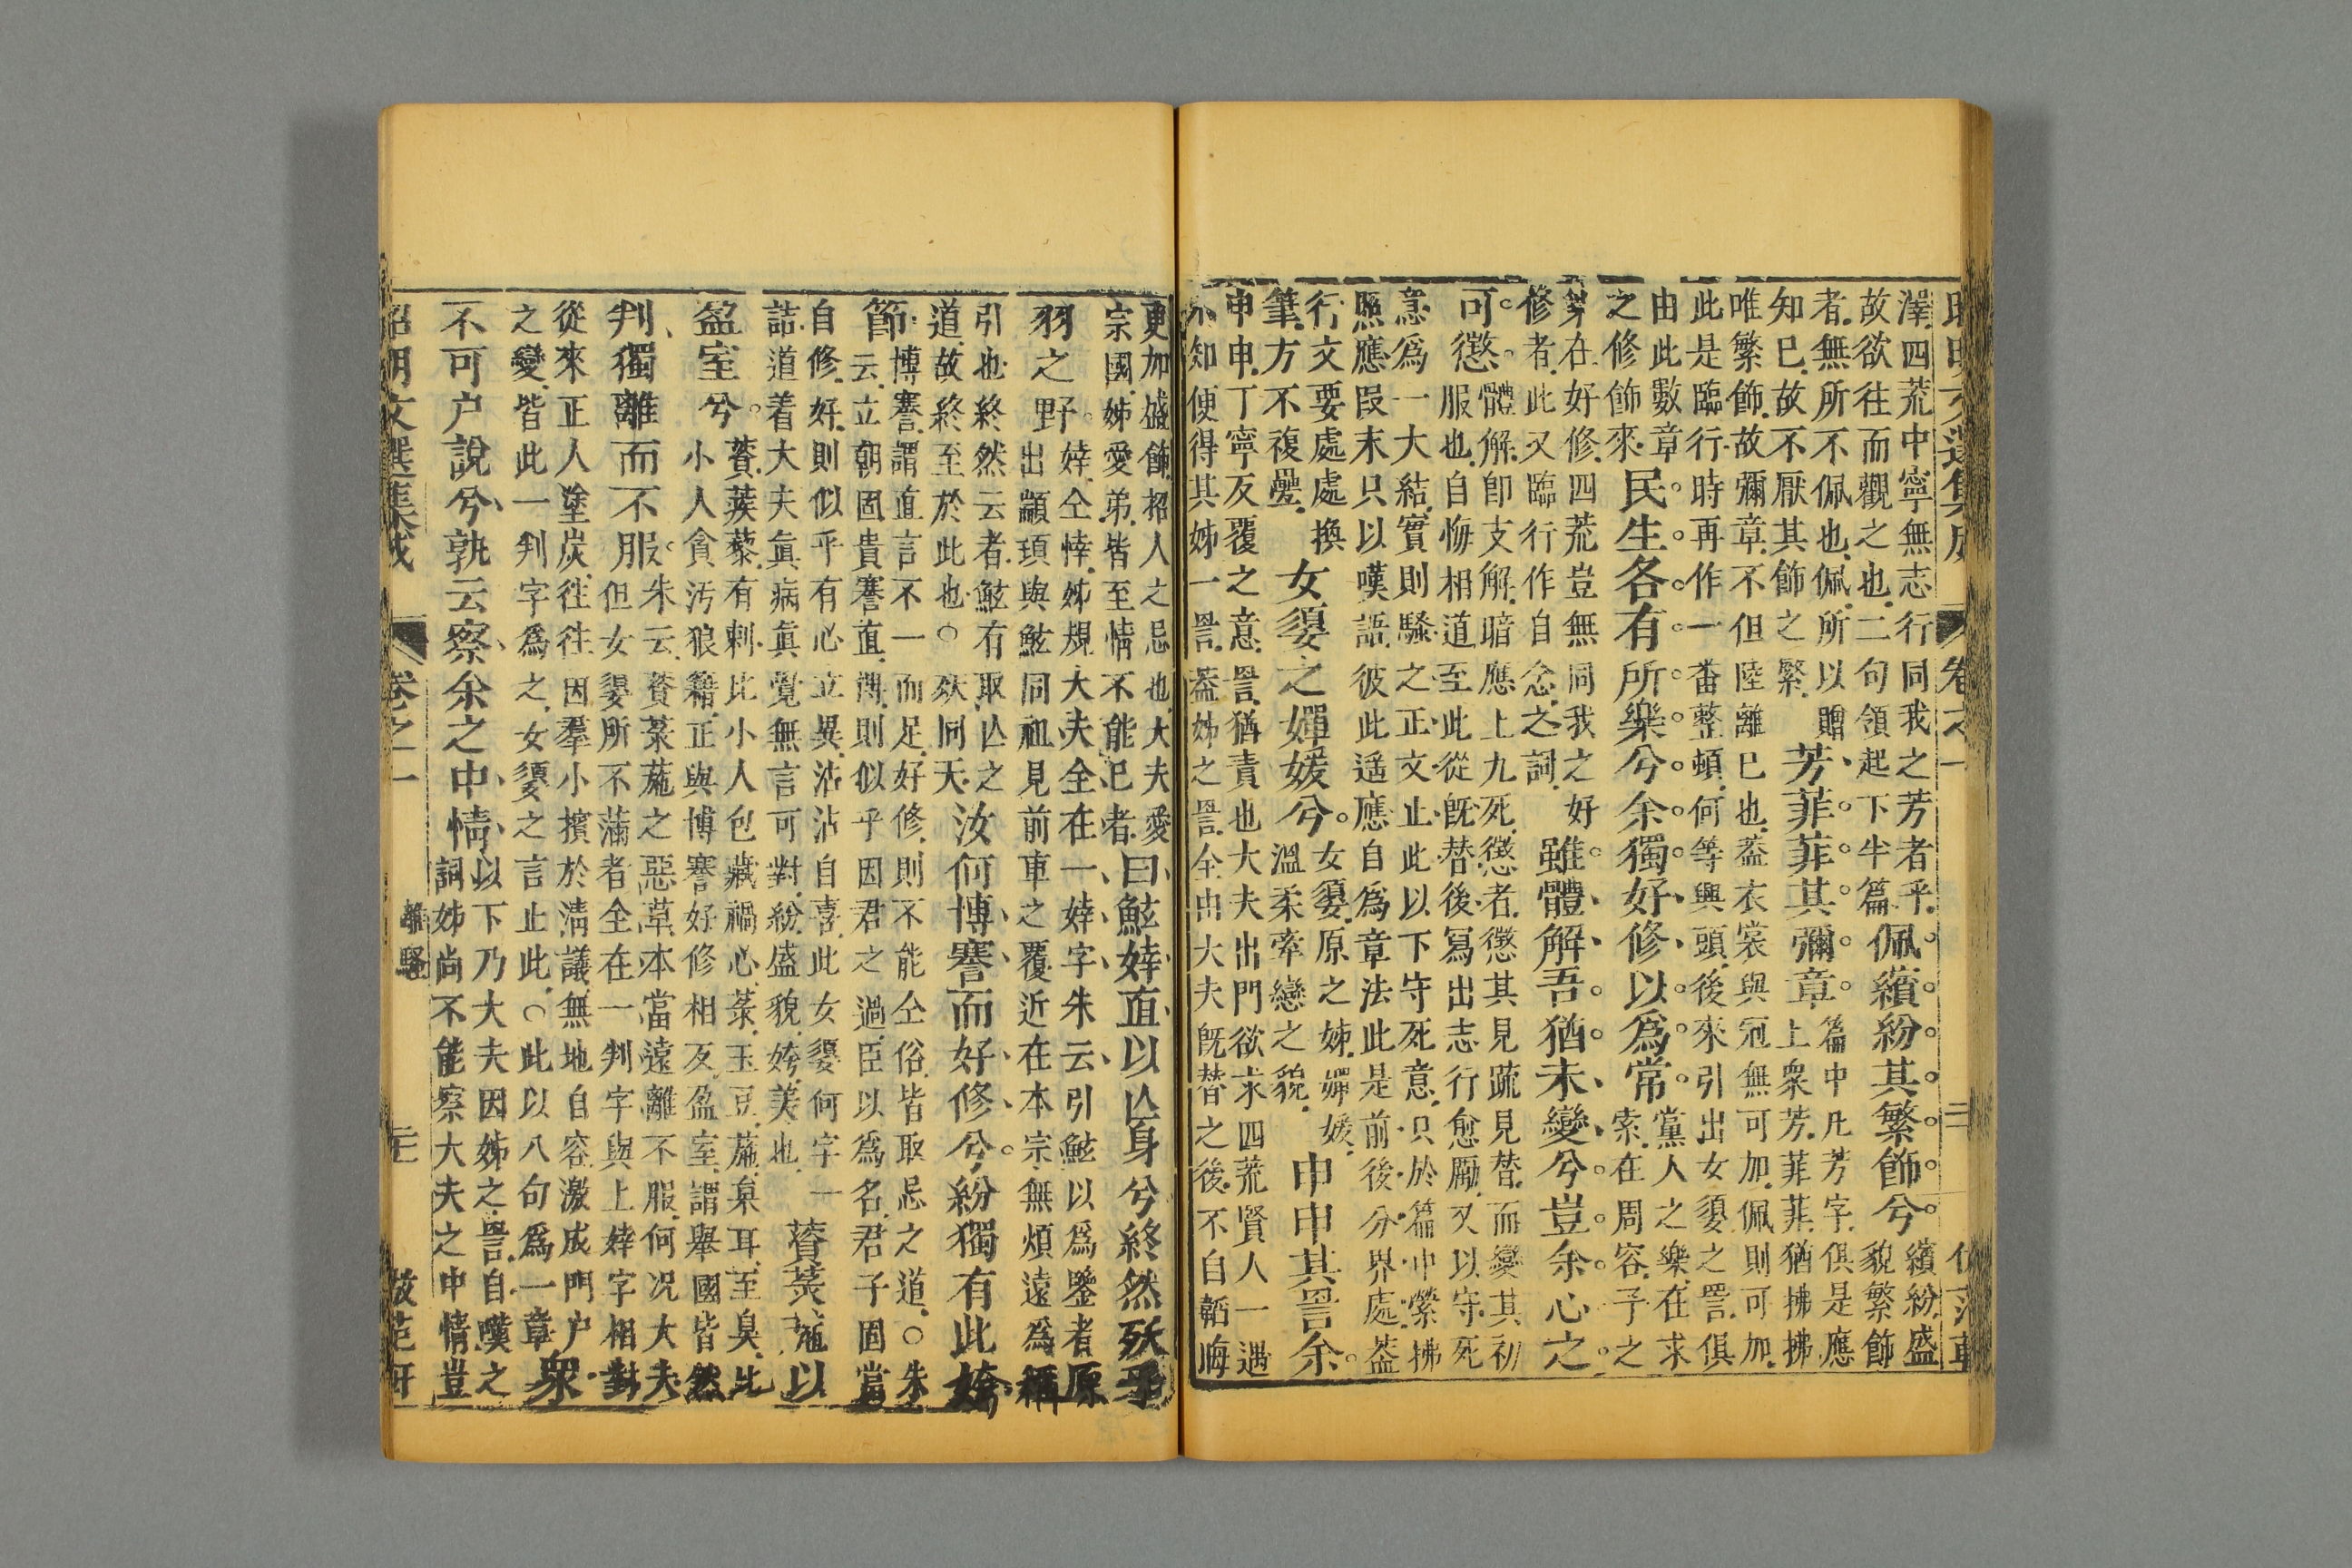 卷之一
澤四荒中寧無志行同我之芳者乎
故欲往而觀之也二句領起下半篇
佩繽紛其繁飾兮
繽紛盛
貌繁飾
者無所不佩也佩所以贈
知已故不厭其飾之繁
芳菲菲其彌章
篇中凡芳字俱是應
上衆芳菲菲猶拂拂
唯繁飾故彌章不但陸離巳也葢衣裳與冠無可加佩則可加
此是臨行時再作一番整頓何等興頭後來引出女嬃之詈俱
由此數章
之修飾來
民生各有所樂兮余獨好修以爲常
黨人之樂在求
索在周容予之
樂在好修四荒豈無同我之好
修者此又臨行作自念之詞
雖體解吾猶未變兮豈余心之
可懲
體解卽支解暗應上九死懲者懲其見疏見替而變其初
服也自悔相道至此從旣替後寫出志行愈勵又以守死
意爲一大結實則騷之正文止此以下守死意只於篇中縈拂
照應叚末只以嘆語彼此遙應自爲章法此是前後分界處葢
行文要處處換
筆方不複疊
女嬃之嬋媛兮
女嬃原之姊嬋媛
溫柔牽戀之貌
申申其詈余
申申丁寧反覆之意詈猶責也大夫出門欲求四荒賢人一遇
不知便得其姊一詈葢姊之詈全由大夫旣替之後不自韜晦
更加盛飾招人之忌也大夫愛
宗國姊愛弟皆至情不能已者
曰鮌婞直以亾身兮終然殀乎
羽之野
婞仝悻姊規大夫全在一婞字朱云引鮌以爲鑒者原
出顓頊與鮌同祖見前車之覆近在本宗無煩遠爲稱
引也終然云者鮌有取亾之
道故終至於此也○殀同夭
汝何博謇而好修兮紛獨有此姱
節
博謇謂直言不一而足好修則不能仝俗皆取忌之道○朱
云立朝固貴謇直博則似乎因君之過臣以爲名君子固當
自修好則似乎有心立異沾沾自喜此女嬃何字一
詰道着大夫眞病眞覺無言可對紛盛貌姱美也
薋菉葹以
盈室兮
薋蒺藜有刺比小人包藏禍心菉玉豆葹枲耳至臭比
小人貪汚狼籍正與博謇好修相反盈室謂舉國皆然
判獨離而不服
朱云薋菉葹之惡草本當遠離不服何况大夫
但女嬃所不滿者全在一判字與上婞字相對
從來正人塗炭往往因羣小擯於淸議無地自容激成門户
之變皆此一判字爲之女嬃之言止此○此以八句爲一章
衆
不可户說兮孰云察余之中情
以下乃大夫因姊之詈自嘆之
詞姊尚不能察大夫之中情豈
昭明文選集成
卷之一
離騷